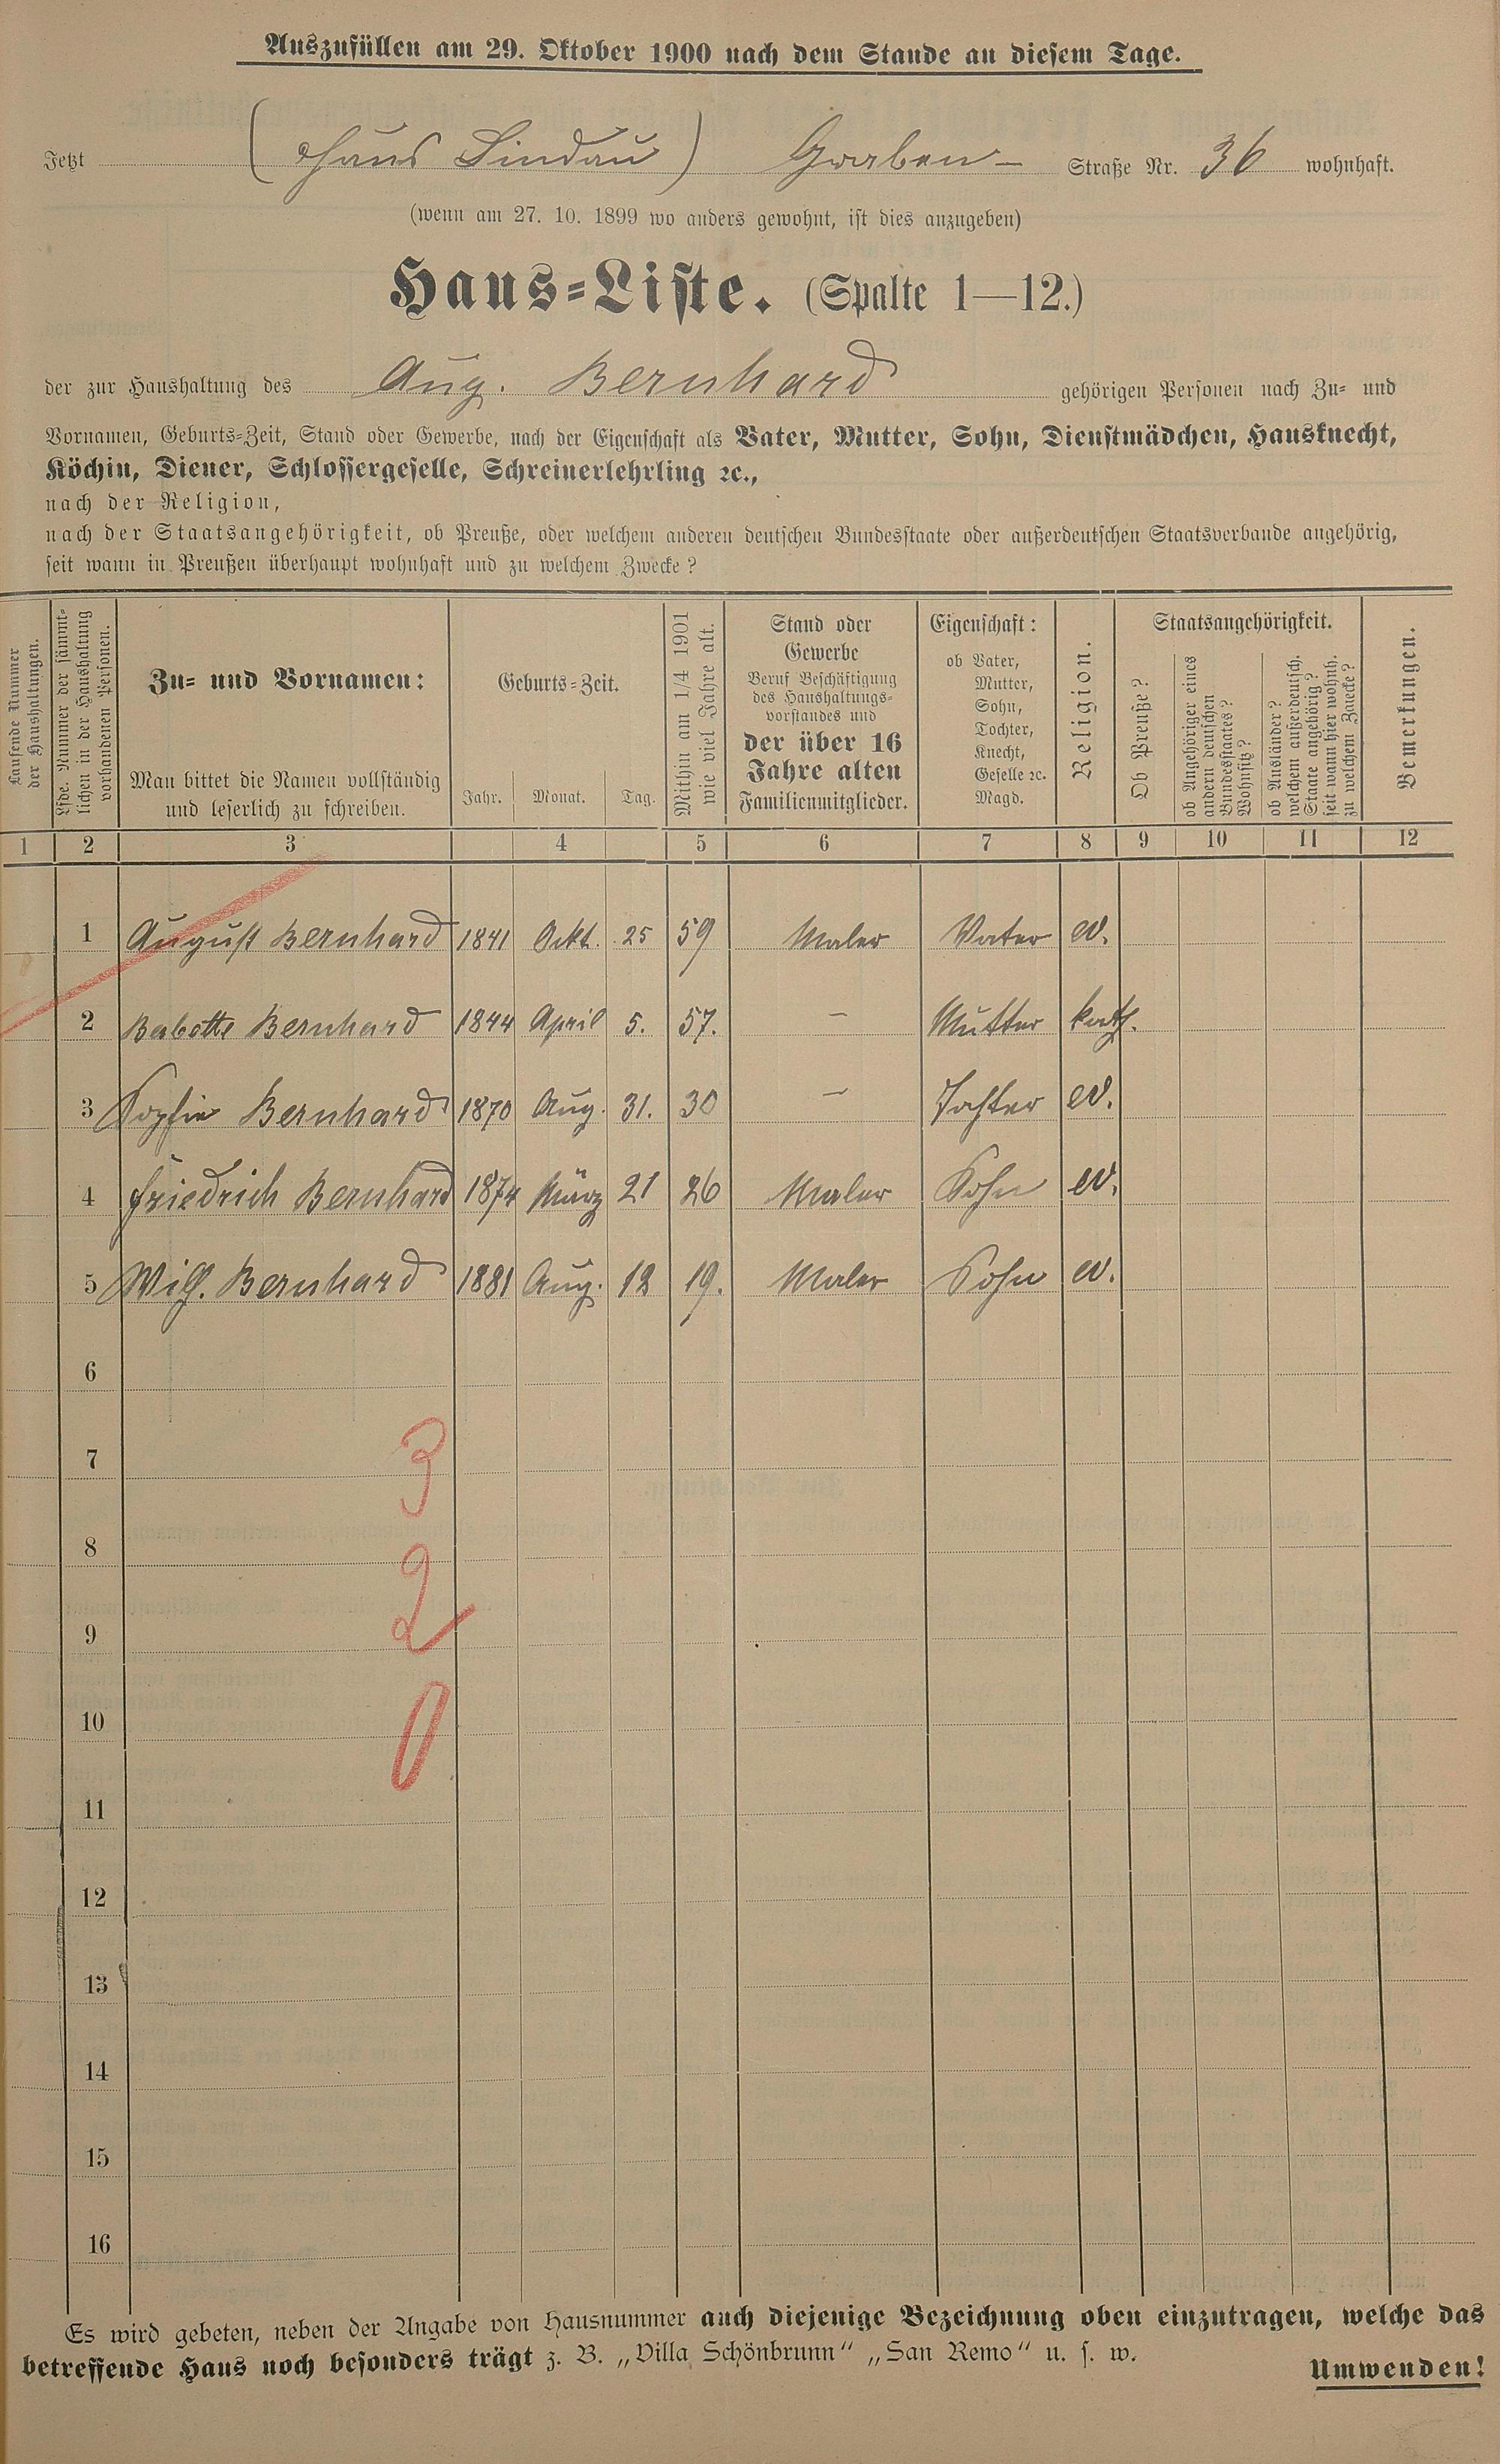 Auszufüllen am 29. Oktober 1900 nach dem Stande an diesem Tage.
Jetzt (Haus Lindau) Graben- Straße Nr. 36 wohnhaft.
(wenn am 27. 10. 1899 wo anders gewohnt, ist dies anzugeben)
Haus-Liste. (Spalte 1—12.)
der zur Haushaltung des Aug. Bernhard gehörigen Personen nach Zu- und
Vornamen, Geburts-Zeit, Stand oder Gewerbe, nach der Eigenschaft als Vater, Mutter, Sohn, Dienstmädchen, Hausknecht,
Köchin, Diener, Schlossergeselle, Schreinerlehrling ꝛc.,
nach der Religion,
nach der Staatsangehörigkeit, ob Preuße, oder welchem anderen deutschen Bundesstaate oder außerdeutschen Staatsverbande angehörig,
seit wann in Preußen überhaupt wohnhaft und zu welchem Zwecke?
Laufende Nummer
der Haushaltungen.
Lfde. Nummer der sämmt-
lichen in der Haushaltung
vorhandenen Personen.
Zu- und Vornamen:
Man bittet die Namen vollständig
und leserlich zu schreiben.
Geburts-Zeit.
Jahr. Monat. Tag.
Mithin am 1/4 1901
wie viel Jahre alt.
Stand oder
Gewerbe
Beruf Beschäftigung
des Haushaltungs-
vorstandes und
der über 16
Jahre alten
Familienmitglieder.
Eigenschaft:
ob Vater,
Mutter,
Sohn,
Tochter,
Knecht,
Geselle ꝛc.
Magd.
Religion.
Staatsangehörigkeit.
Ob Preuße?
ob Angehöriger eines
andern deutschen
Bundesstaates?
Wohnsitz?
ob Ausländer?
welchem außerdeutsch.
Staate angehörig?
seit wann hier wohnh.
zu welchem Zwecke?
Bemerkungen.
1 2 3 4 5 6 7 8 9 10 11 12
1 August Bernhard 1841 Okt. 25 59 Maler Vater ev.
2 Babette Bernhard 1844 April 5. 57. – Mutter kath.
3 Sophie Bernhard 1870 Aug. 31. 30 – Tochter ev.
4 Friedrich Bernhard 1874 März 21 26 Maler Sohn ev.
5 Wilh. Bernhard 1881 Aug. 12 19. Maler Sohn ev.
6
7 3
8
9 2
10 0
11
12
13
14
15
16
Es wird gebeten, neben der Angabe von Hausnummer auch diejenige Bezeichnung oben einzutragen, welche das
betreffende Haus noch besonders trägt z. B. „Villa Schönbrunn“ „San Remo“ u. s. w.
Umwenden!